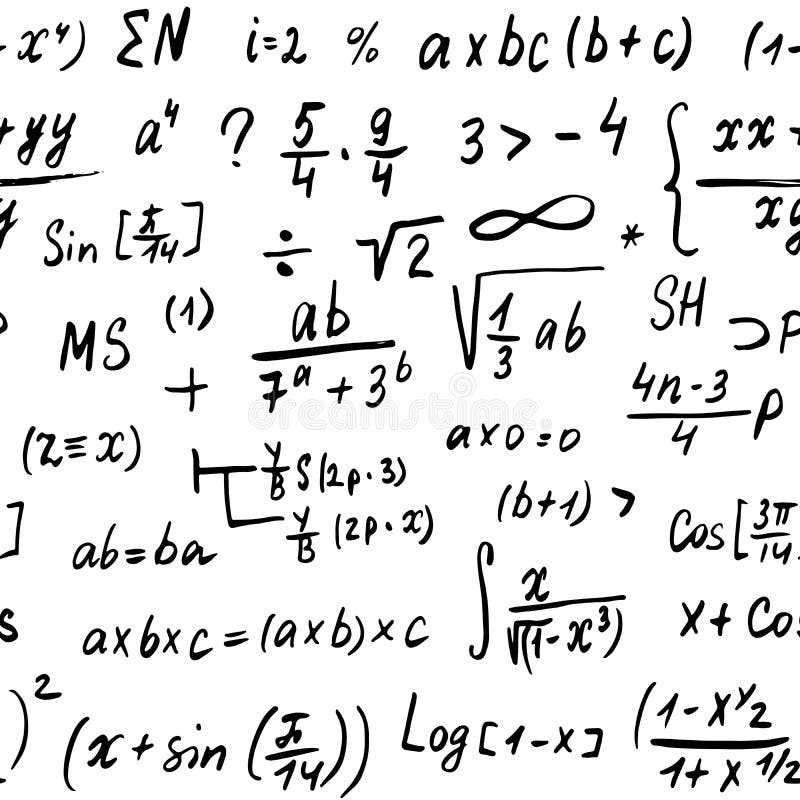 - x⁴) ΣN i=2 % axbc(b+c) (1-
+yy a⁴ ? 5/4 · 9/4 3 > -4 { xx +
y Sin [π/14] ÷ √2 ∞ * xy
MS (1) + ab/(7ᵃ + 3ᵇ) √(1/3 ab) SH ⊃P
(z≡x) axo=o (4n-3)/4 P
Y/B S(2p·3)
Y/B (2p·x) (b+1) > Cos[3π/14
] ab=ba
s axbxc=(axb)xc ∫ x/(√(1-x³)) x+Cos
)² (x+sin(π/14)) Log[1-x] (1-x^y2/1+x^1/2
dreamstime